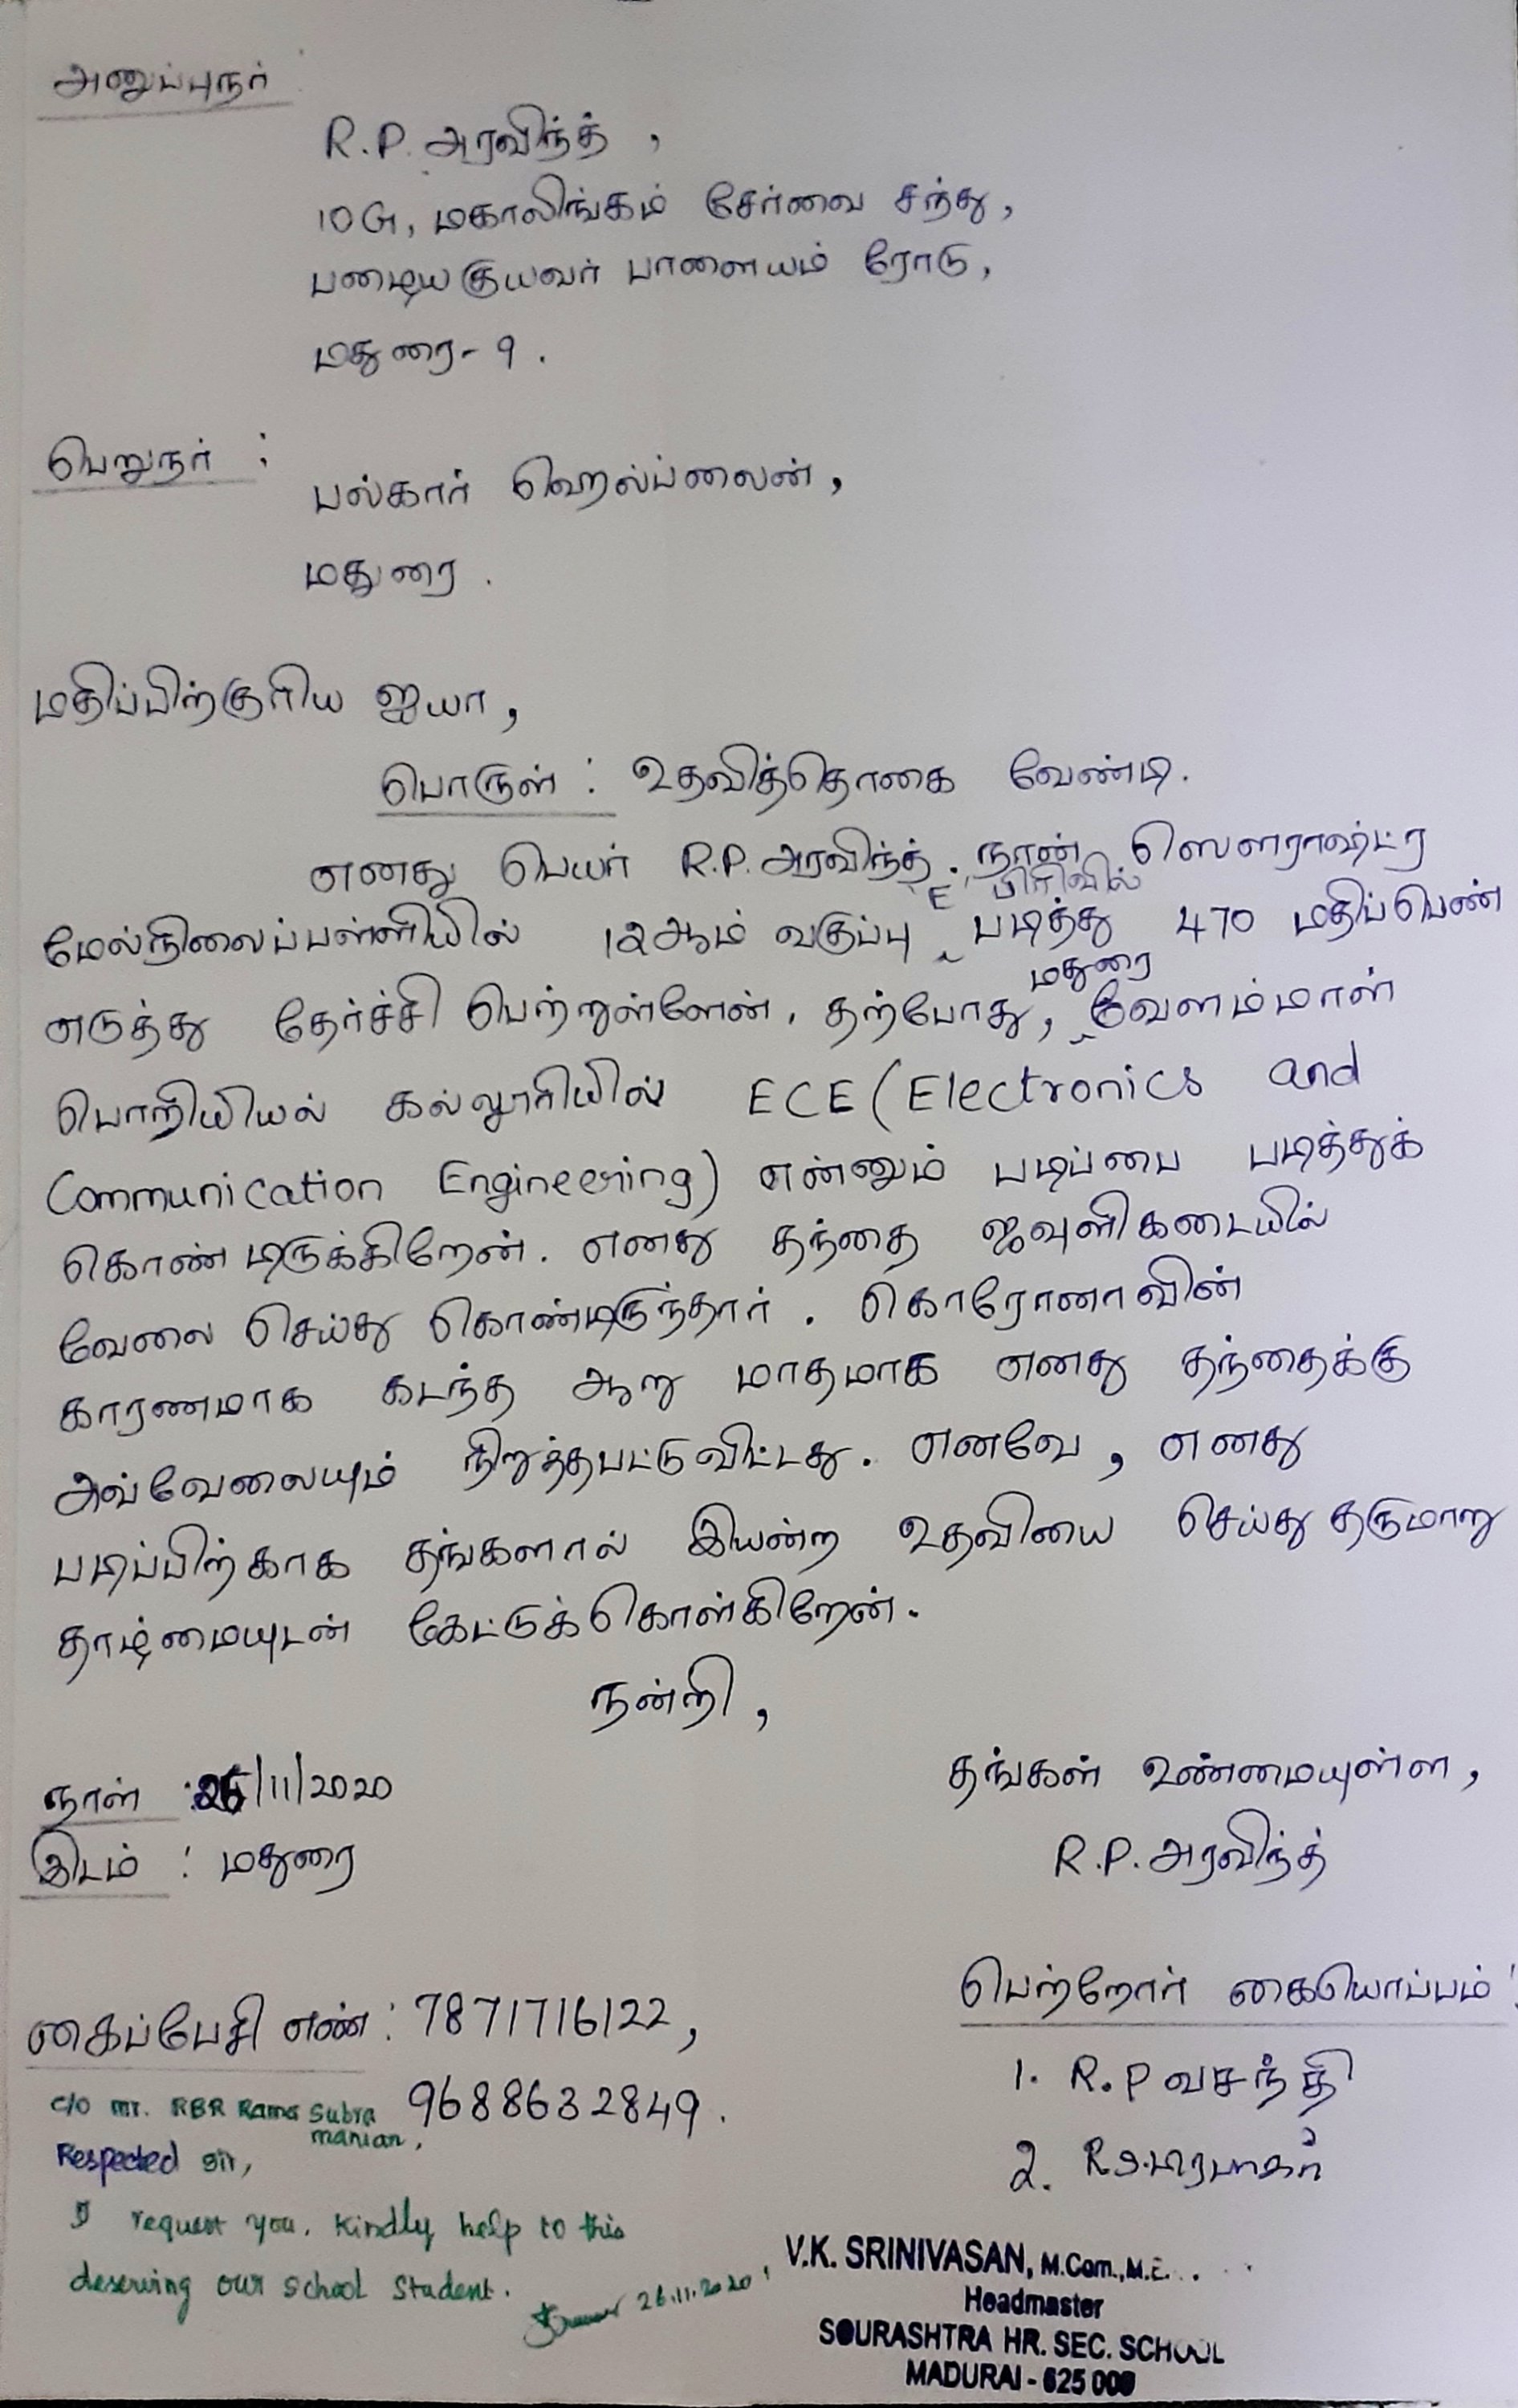 அனுப்புநர் :
R.P. அரவிந்த் ,
10G, மகாலிங்கம் சேர்வை சந்து,
பழையகுயவர் பாளையம் ரோடு,
மதுரை-9 .
பெறுநர் :
பல்கார் ஹெல்ப்லைன்,
மதுரை .
மதிப்பிற்குரிய ஐயா,
பொருள் : உதவித்தொகை வேண்டி.
எனது பெயர் R.P. அரவிந்த். நான் ஸௌராஷ்ட்ர
மேல்நிலைப்பள்ளியில் 12ஆம் வகுப்பு E பிரிவில் படித்து 470 மதிப்பெண்
எடுத்து தேர்ச்சி பெற்றுள்ளேன். தற்போது, மதுரை வேளம்மாள்
பொறியியல் கல்லூரியில் ECE (Electronics and
Communication Engineering) என்னும் படிப்பை படித்துக்
கொண்டிருக்கிறேன். எனது தந்தை ஜவுளிகடையில்
வேலை செய்து கொண்டிருந்தார். கொரோனாவின்
காரணமாக கடந்த ஆறு மாதமாக எனது தந்தைக்கு
அவ்வேலையும் நிறுத்தபட்டுவிட்டது. எனவே, எனது
படிப்பிற்காக தங்களால் இயன்ற உதவியை செய்து தருமாறு
தாழ்மையுடன் கேட்டுக்கொள்கிறேன்.
நன்றி,
நாள் : 26/11/2020
தங்கள் உண்மையுள்ள,
இடம் : மதுரை
R.P. அரவிந்த்
பெற்றோர் கையொப்பம் :
கைப்பேசி எண் : 7871716122,
9688632849.
1. R.P வசந்தி
2. R.S.பிரபாகர்
c/o mr. RBR Rama Subra
manian,
Respected sir,
I request you. Kindly help to this
deserving our school student.
26.11.2020
V.K. SRINIVASAN, M.Com., M.E.
Headmaster
SOURASHTRA HR. SEC. SCHOOL
MADURAI - 625 009